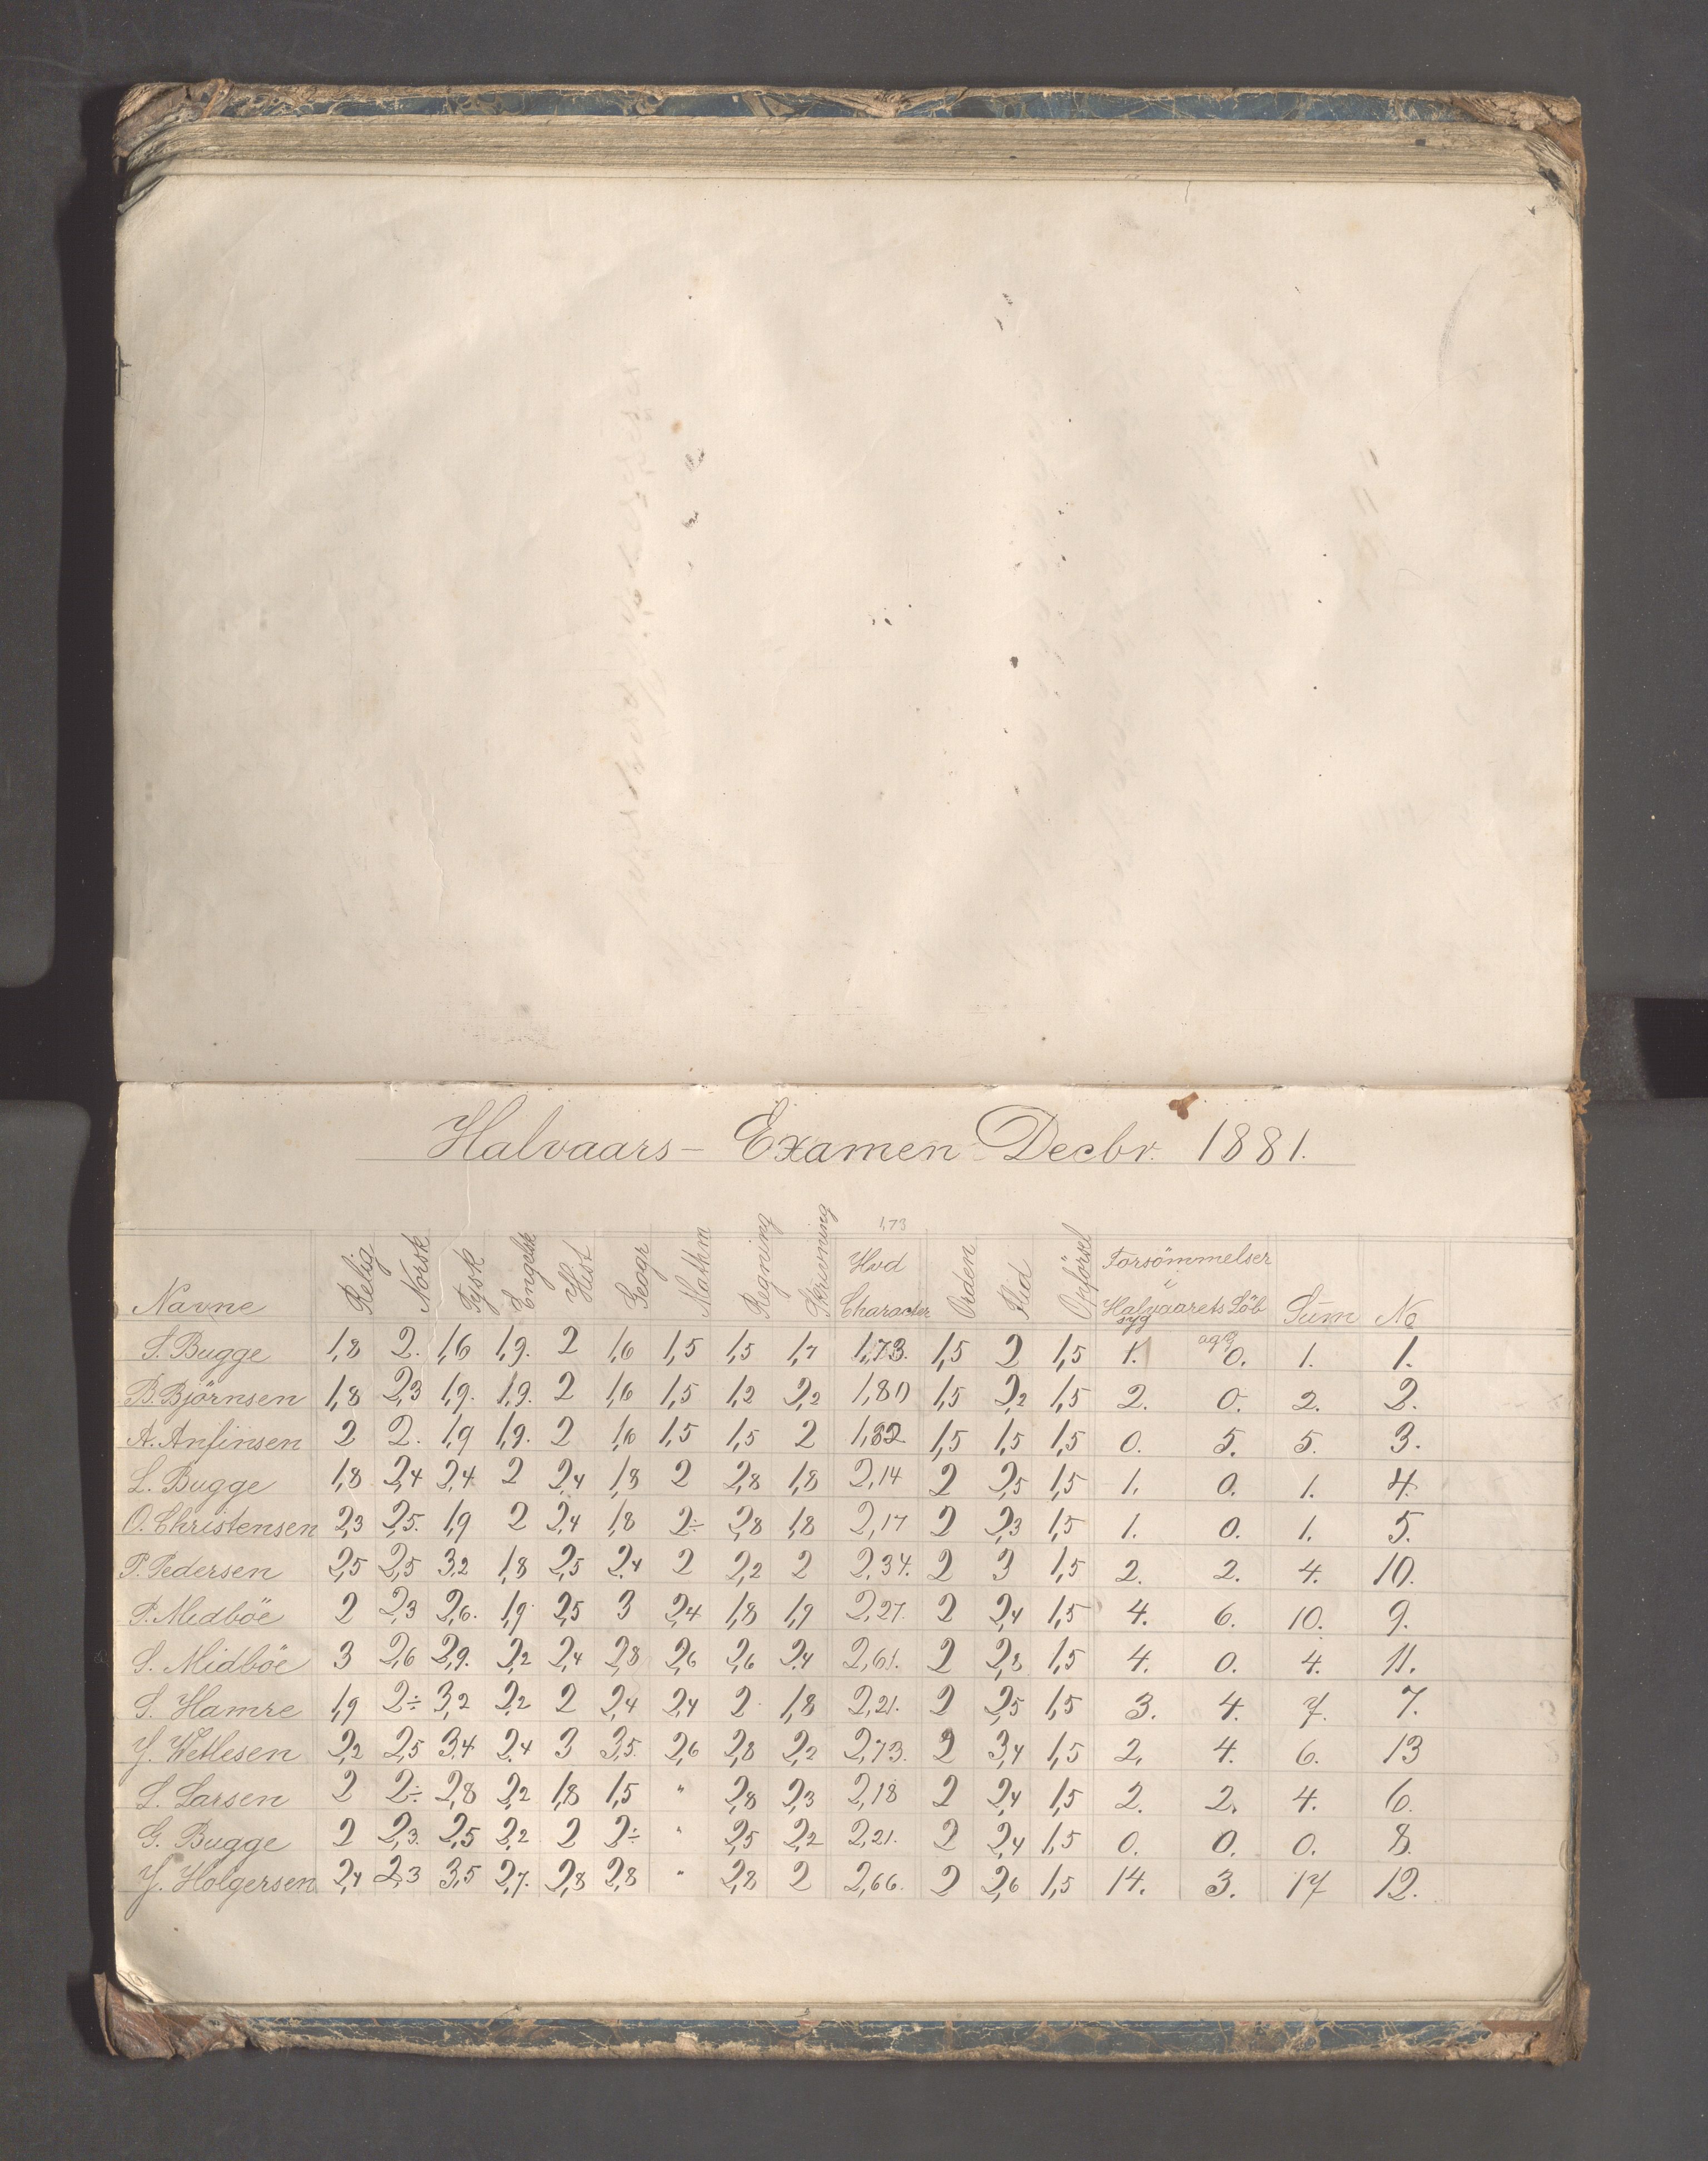 Halvaars- Examen Decbr. 1881.
1,73
Navne Relig Norsk Tysk Engelsk Hist Geogr Mathm Regning Skrivning Hvd Character Orden Flid Opförsel Forsömmelser i Halvaarets Löb Sum No
syg
S. Bugge 1,8 2. 1,6 1,9. 2 1,6 1,5 1,5 1,7 1,73. 1,5 2 1,5 1. 0. 1. 1.
B. Björnsen 1,8 2,3 1,9. 1,9. 2 1,6 1,5 1,2 2,2 1,80 1,5 2,2 1,5 2. 0. 2. 2.
A. Anfinsen 2 2. 1,9 1,9. 2 1,6 1,5 1,5 2 1,82 1,5 1,5 1,5 0. 5. 5. 3.
L. Bugge 1,8 2,4 2,4 2 2,4 1,8 2 2,8 1,8 2,14 2 2,5 1,5 1. 0. 1. 4.
O. Christensen 2,3 2,5. 1,9 2 2,4 1,8 2÷ 2,8 1,8 2,17 2 2,3 1,5 1. 0. 1. 5.
P. Pedersen 2,5 2,5 3,2 1,8 2,5 2,4 2 2,2 2 2,34. 2 3 1,5 2. 2. 4. 10.
P. Midböe 2 2,3 2,6. 1,9 2,5 3 2,4 1,8 1,9 2,27. 2 2,4 1,5 4. 6. 10. 9.
S. Midböe 3 2,6 2,9. 2,2 2,4 2,8 2,6 2,6 2,4 2,61. 2 2,8 1,5 4. 0. 4. 11.
S. Hamre 1,9 2÷ 3,2 2,2 2 2,4 2,4 2 1,8 2,21. 2 2,5 1,5 3. 4. 7. 7.
J. Wetlesen 2,2 2,5 3,4 2,4 3 3,5. 2,6 2,8 2,2 2,73. 2 3,4 1,5 2. 4. 6. 13
L. Larsen 2 2÷ 2,8 2,2 1,8 1,5 " 2,8 2,3 2,18 2 2,4 1,5 2. 2. 4. 6.
G. Bugge 2 2,3. 2,5 2,2 2 2÷ " 2,5 2,2 2,21. 2 2,4 1,5 0. 0. 0. 8.
J. Holgersen 2,4 2,3 3,5 2,7. 2,8 2,8 " 2,8 2 2,66. 2 2,6 1,5 14. 3. 17 12.